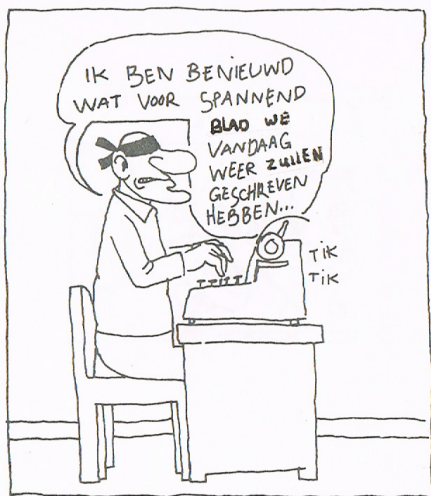 IK BEN BENIEUWD
WAT VOOR SPANNEND
BLAD WE
VANDAAG
WEER ZULLEN
GESCHREVEN
HEBBEN...
TIK
TIK